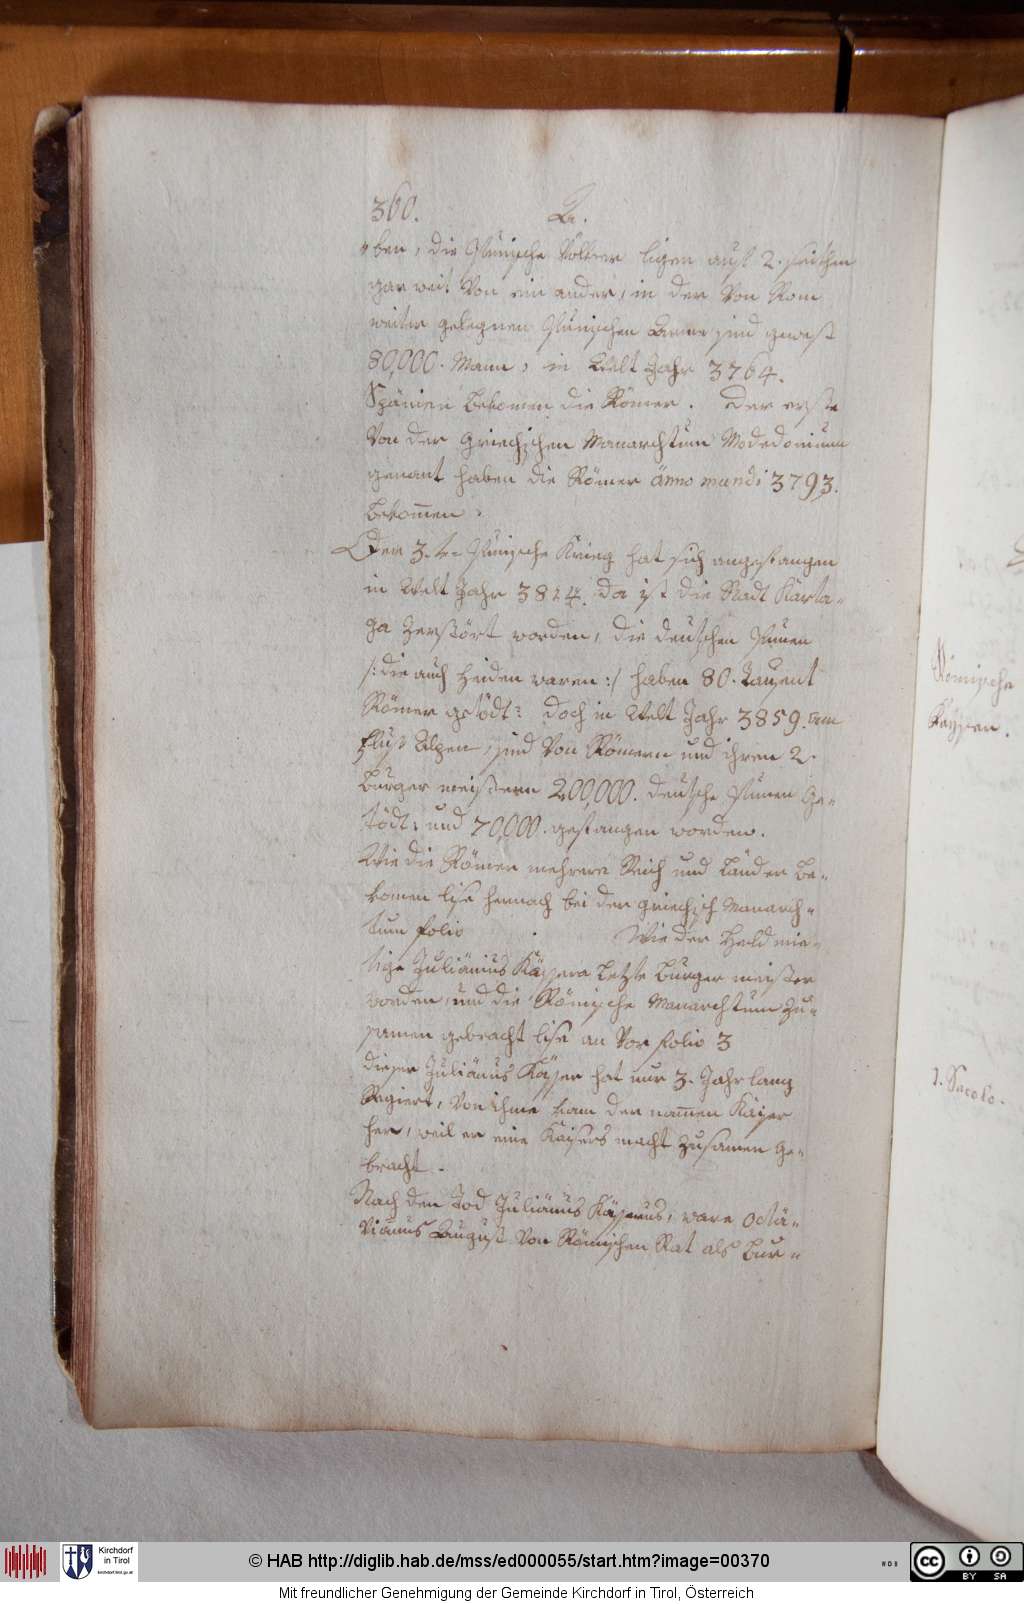 360. A.
"ben, die Punische Völker ligen auf 2. seithen
gar weit von ein ander, in der von Rom
weiter gelegnen Punischen Armee sind gwest
80,000. Mann, in Welt Jahr 3764.
Spänien bekomen die Römer. Der erste
von der Griechischen Manarchtum Mededonium
genant haben die Römer änno mundi 3793.
bekommen.
Der 3.te Punische Krieg hat sich angefangen
in Welt Jahr 3824. da ist die Stadt Karta-
ga zerstört worden, die deutschen Punen
/: die auch Heiden waren :/ haben 80. Tausent
Römer getödt: doch in Welt Jahr 3859. am
Fluß Alpen, sind von Römern und ihren 2.
burger meistern 200,000. deutsche Punen ge-
tödt, und 70,000. gefangen worden.
Wie die Römer mehrere Reich und Länder be-
komen lise hernach bei der griechisch Manarch-
tum folio Wie der Held mie-
tige Juliänius Käysera letzte burger meister
worden, und die Römische Manarchtum zu-
samen gebracht lise an vor folio 3
dieser Juliänus Käyser hat nur 3. Jahr lang
Regiert, von ihme kam der nammen Käyser
her, weil er eine Kaisers macht zusamen ge-
bracht.
Nach den Tod Juliänus Käyserus, ware Octä-
viänus August von Römischen Rat als bur-
Römische
Kayser.
1. Saeculo.
Kirchdorf
in Tirol
kirchdorf.tirol.gv.at
© HAB http://diglib.hab.de/mss/ed000055/start.htm?image=00370
WDB
cc BY SA
Mit freundlicher Genehmigung der Gemeinde Kirchdorf in Tirol, Österreich